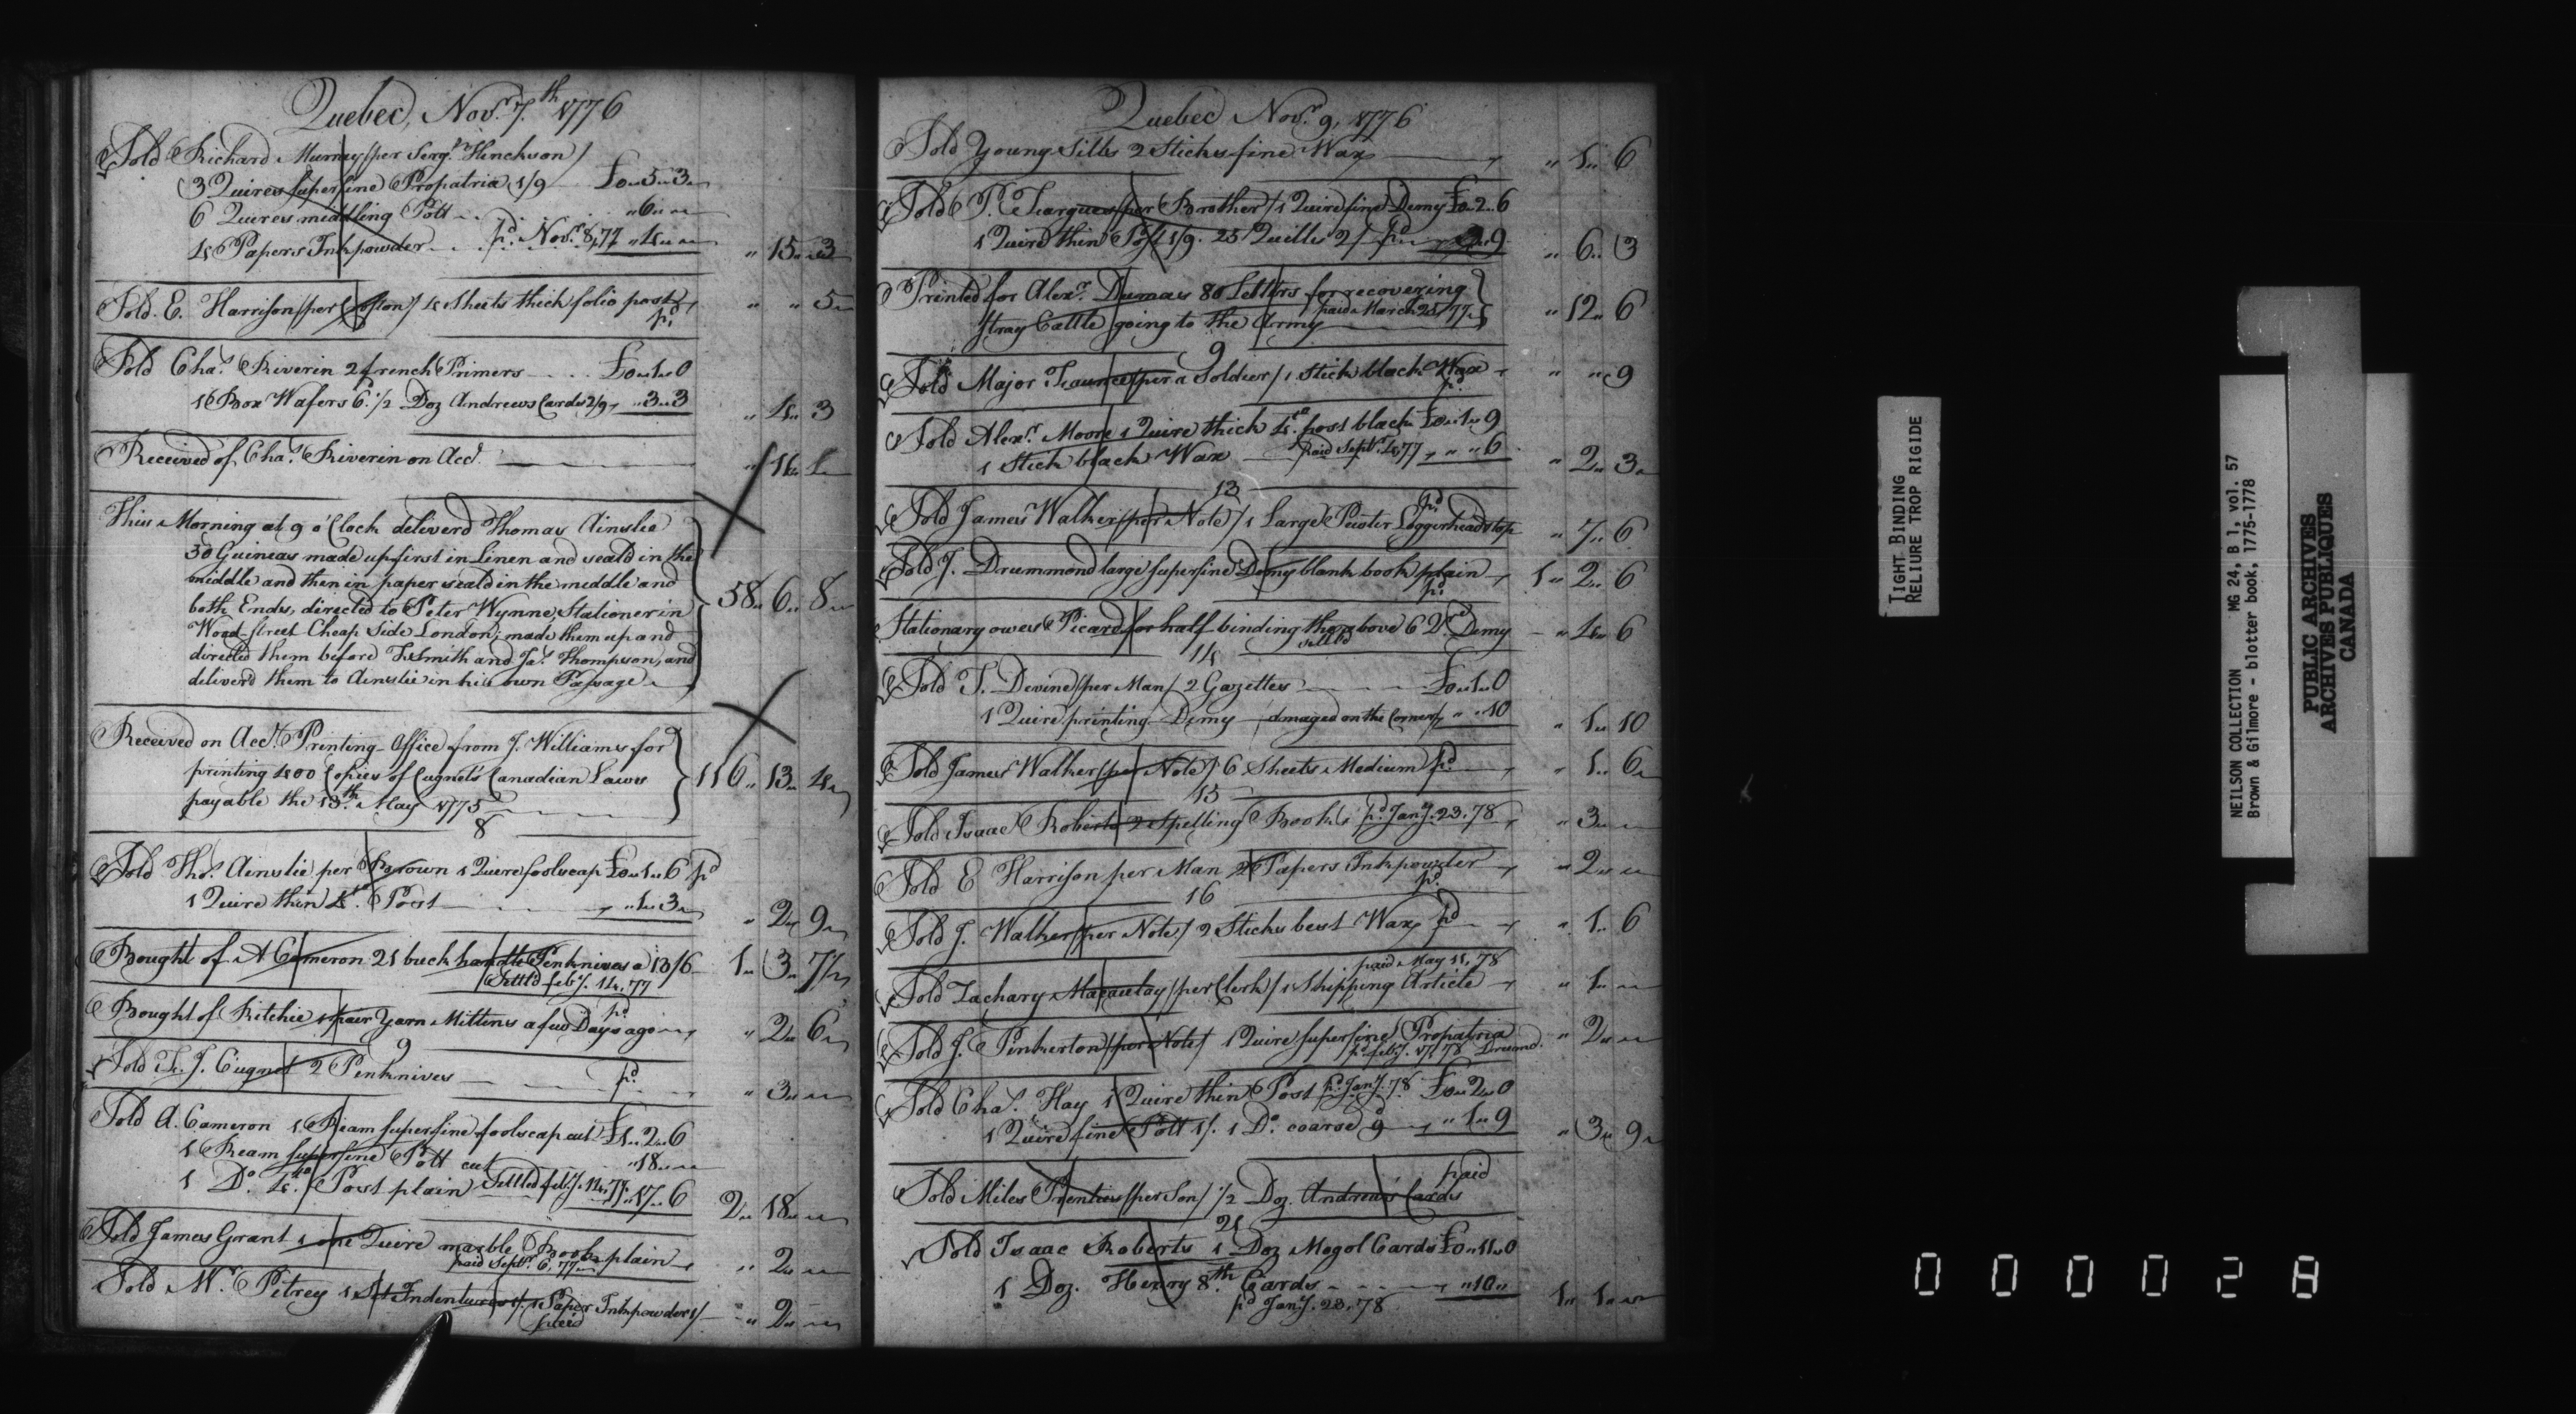 Quebec, Novr. 7th 1776
Sold Richard Murray /per Sergt. Hinchson/
3 Quires superfine Propatria 1/9 £0 " 5 " 3 "
6 Quires middling Pott " 6 " "
4 Papers Inkpowder pd. Novr. 8, 77 " 4 " " " 15 " 3
Sold E. Harrison /per Coffon/ 4 Sheets thick folio post " " 5
pd.
Sold Chas. Riverin 2 french Primers £0 " 1 " 0
1 Box Wafers 6. 1/2 Doz Andrews Cards 2/9 " 3 " 3 " 4 " 3
Received of Chas. Riverin on Acct.
This Morning at 9 o'Clock deliverd Thomas Ainslie
50 Guineas made up first in Linen and seald in the
middle and then in paper seald in the middle and
both Ends, directed to Peter Wynne, Stationer in 58 " 6 " 8
Wood-street Cheap Side London; made them up and
directed them before T. Smith and Js. Thompson, and
deliverd them to Ainslie in his own Passage
Received on Acct. Printing-Office from J. Williams for
printing 400 Copies of Cugnet's Canadian Laws 116 " 13 " 4
payable the 13th. May 1775
8
Sold Thos. Ainslie per Brown 1 Quire foolscap £0 " 1 " 6 pd
1 Quire thin 4to. Post " 1 " 3 " 2 " 9
Bought of A Cameron 21 buck handle Penknives a 13/6 1 " 3 " 7 1/2
Settl'd feby. 14, 77
Bought of Ritchie 1 pair Yarn Mittens a few Days ago pd " 2 " 6
9
Sold F. J. Cugnet 2 Penknives pd. " 3 " "
Sold A. Cameron 1 Ream superfine foolscap cut £1 " 2 " 6
1 Ream superfine Pott cut " 18 " "
1 Do. 4to. Post plain Settled feby. 14, 77 " 17 " 6 2 " 18 " "
Sold James Grant 1 one Quire marble Book plain " 2 " "
paid Septr. 6, 77
Sold Mr. Pitrey 1 Set Indentures 1/. 1 Paper Inkpowder 1/ " 2 " "
paid
Quebec Novr. 9, 1776
Sold Young Sills 2 Sticks fine Wax " 1 " 6
Sold P. Feargues /per Brother/ 1 Quire fine Demy £0 " 2 " 6
1 Quire thin Post 1/9. 25 Quills 2/ pd " 3 " 9 " 6 " 3
Printed for Alexr. Dumas 80 Letters for recovering
paid March 25, 77 " 12 " 6
stray Cattle going to the Army
9
Sold Major Faunce /per a Soldier/ 1 stick black Wax " " 9
pd
Sold Alexr. Moore 1 Quire thick 4to. post black £0 " 1 " 9
1 Stick black Wax paid Septr. 4, 77 " " 6 " 2 " 3
13
Sold James Walker /per Note/ 1 Large Pewter Loggerhead stop pd " 7 " 6
Sold J. Drummond large superfine Demy blank book plain 1 " 2 " 6
pd.
Stationary owes Picard for half binding the above 6 Qr. Demy " 4 " 6
settld
14
Sold T. Devine /per Man/ 2 Gazettes £0 " 1 " 0
1 Quire printing Demy /damaged on the Corner/ " " 10 " 1 " 10
Sold James Walker /per Note/ 6 Sheets Medium pd " 1 " 6
15
Sold Isaac Roberts 2 Spelling Books pd. Jany. 23, 78 " 3 " "
Sold E Harrison per Man 2 Papers Inkpowder " 2 " "
pd.
16
Sold J. Walker /per Note/ 2 Sticks best Wax pd " 1 " 6
paid May 11, 78
Sold Zachary Macaulay /per Clerk/ 1 Shipping Article " 1 " "
Sold J. Pinkerton /per Note/ 1 Quire superfine Propatria " 2 " "
pd. feby. 17, 78
Sold Chas. Hay 1 Quire thin Post pd. Jany. 78 £0 " 2 " 0
1 Quire fine Pott 1/. 1 Do. coarse 9 " 1 " 9 " 3 " 9
paid
Sold Miles Prenties /per Son/ 1/2 Doz. Andrew's Cards
21
Sold Isaac Roberts 1 Doz Mogol Cards £0 " 11 " 0
1 Doz. Henry 8th. Cards " 10 " 1 " 1 " "
pd Jany. 23, 78
TIGHT BINDING
RELIURE TROP RIGIDE
NEILSON COLLECTION MG 24, B 1, vol. 57
Brown & Gilmore - blotter book, 1775-1778
PUBLIC ARCHIVES
ARCHIVES PUBLIQUES
CANADA
000028